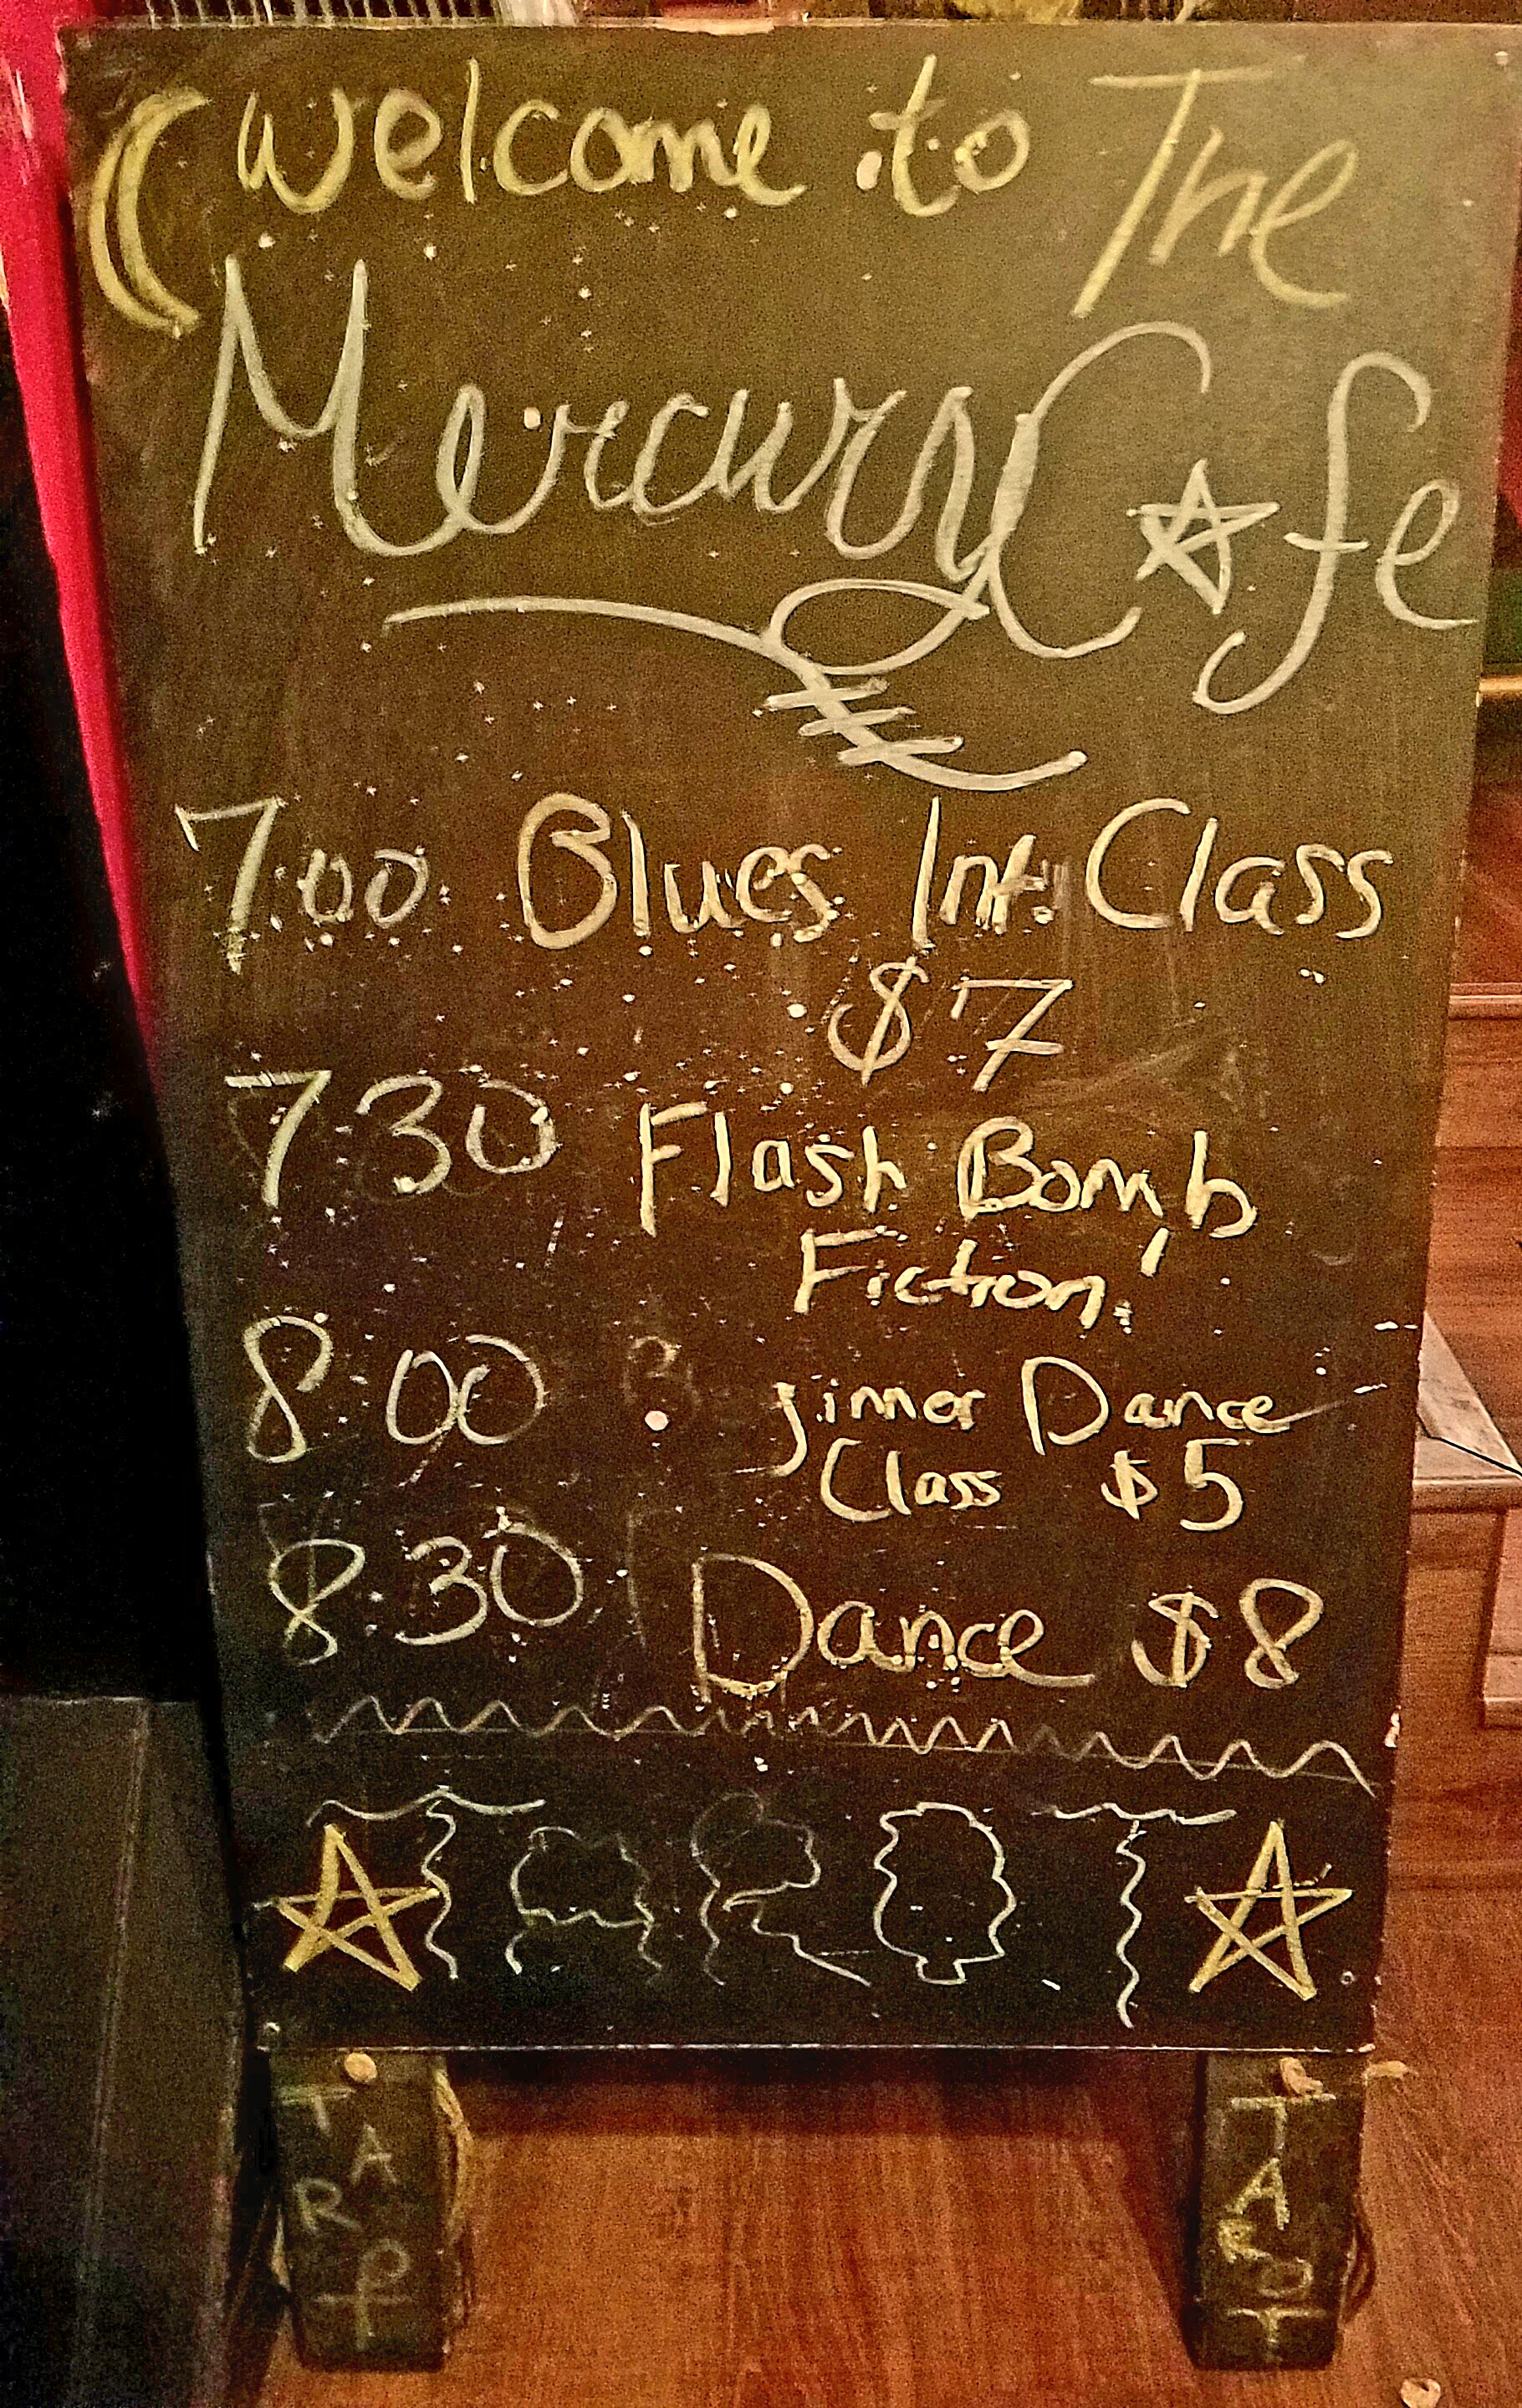 Welcome to The
Mercury Cafe
7:00 Blues Int. Class
$7
7:30 Flash Bomb
Fiction!
8:00 ginner Dance
Class $5
8:30 Dance $8
TAROT
TAROT
TAROT